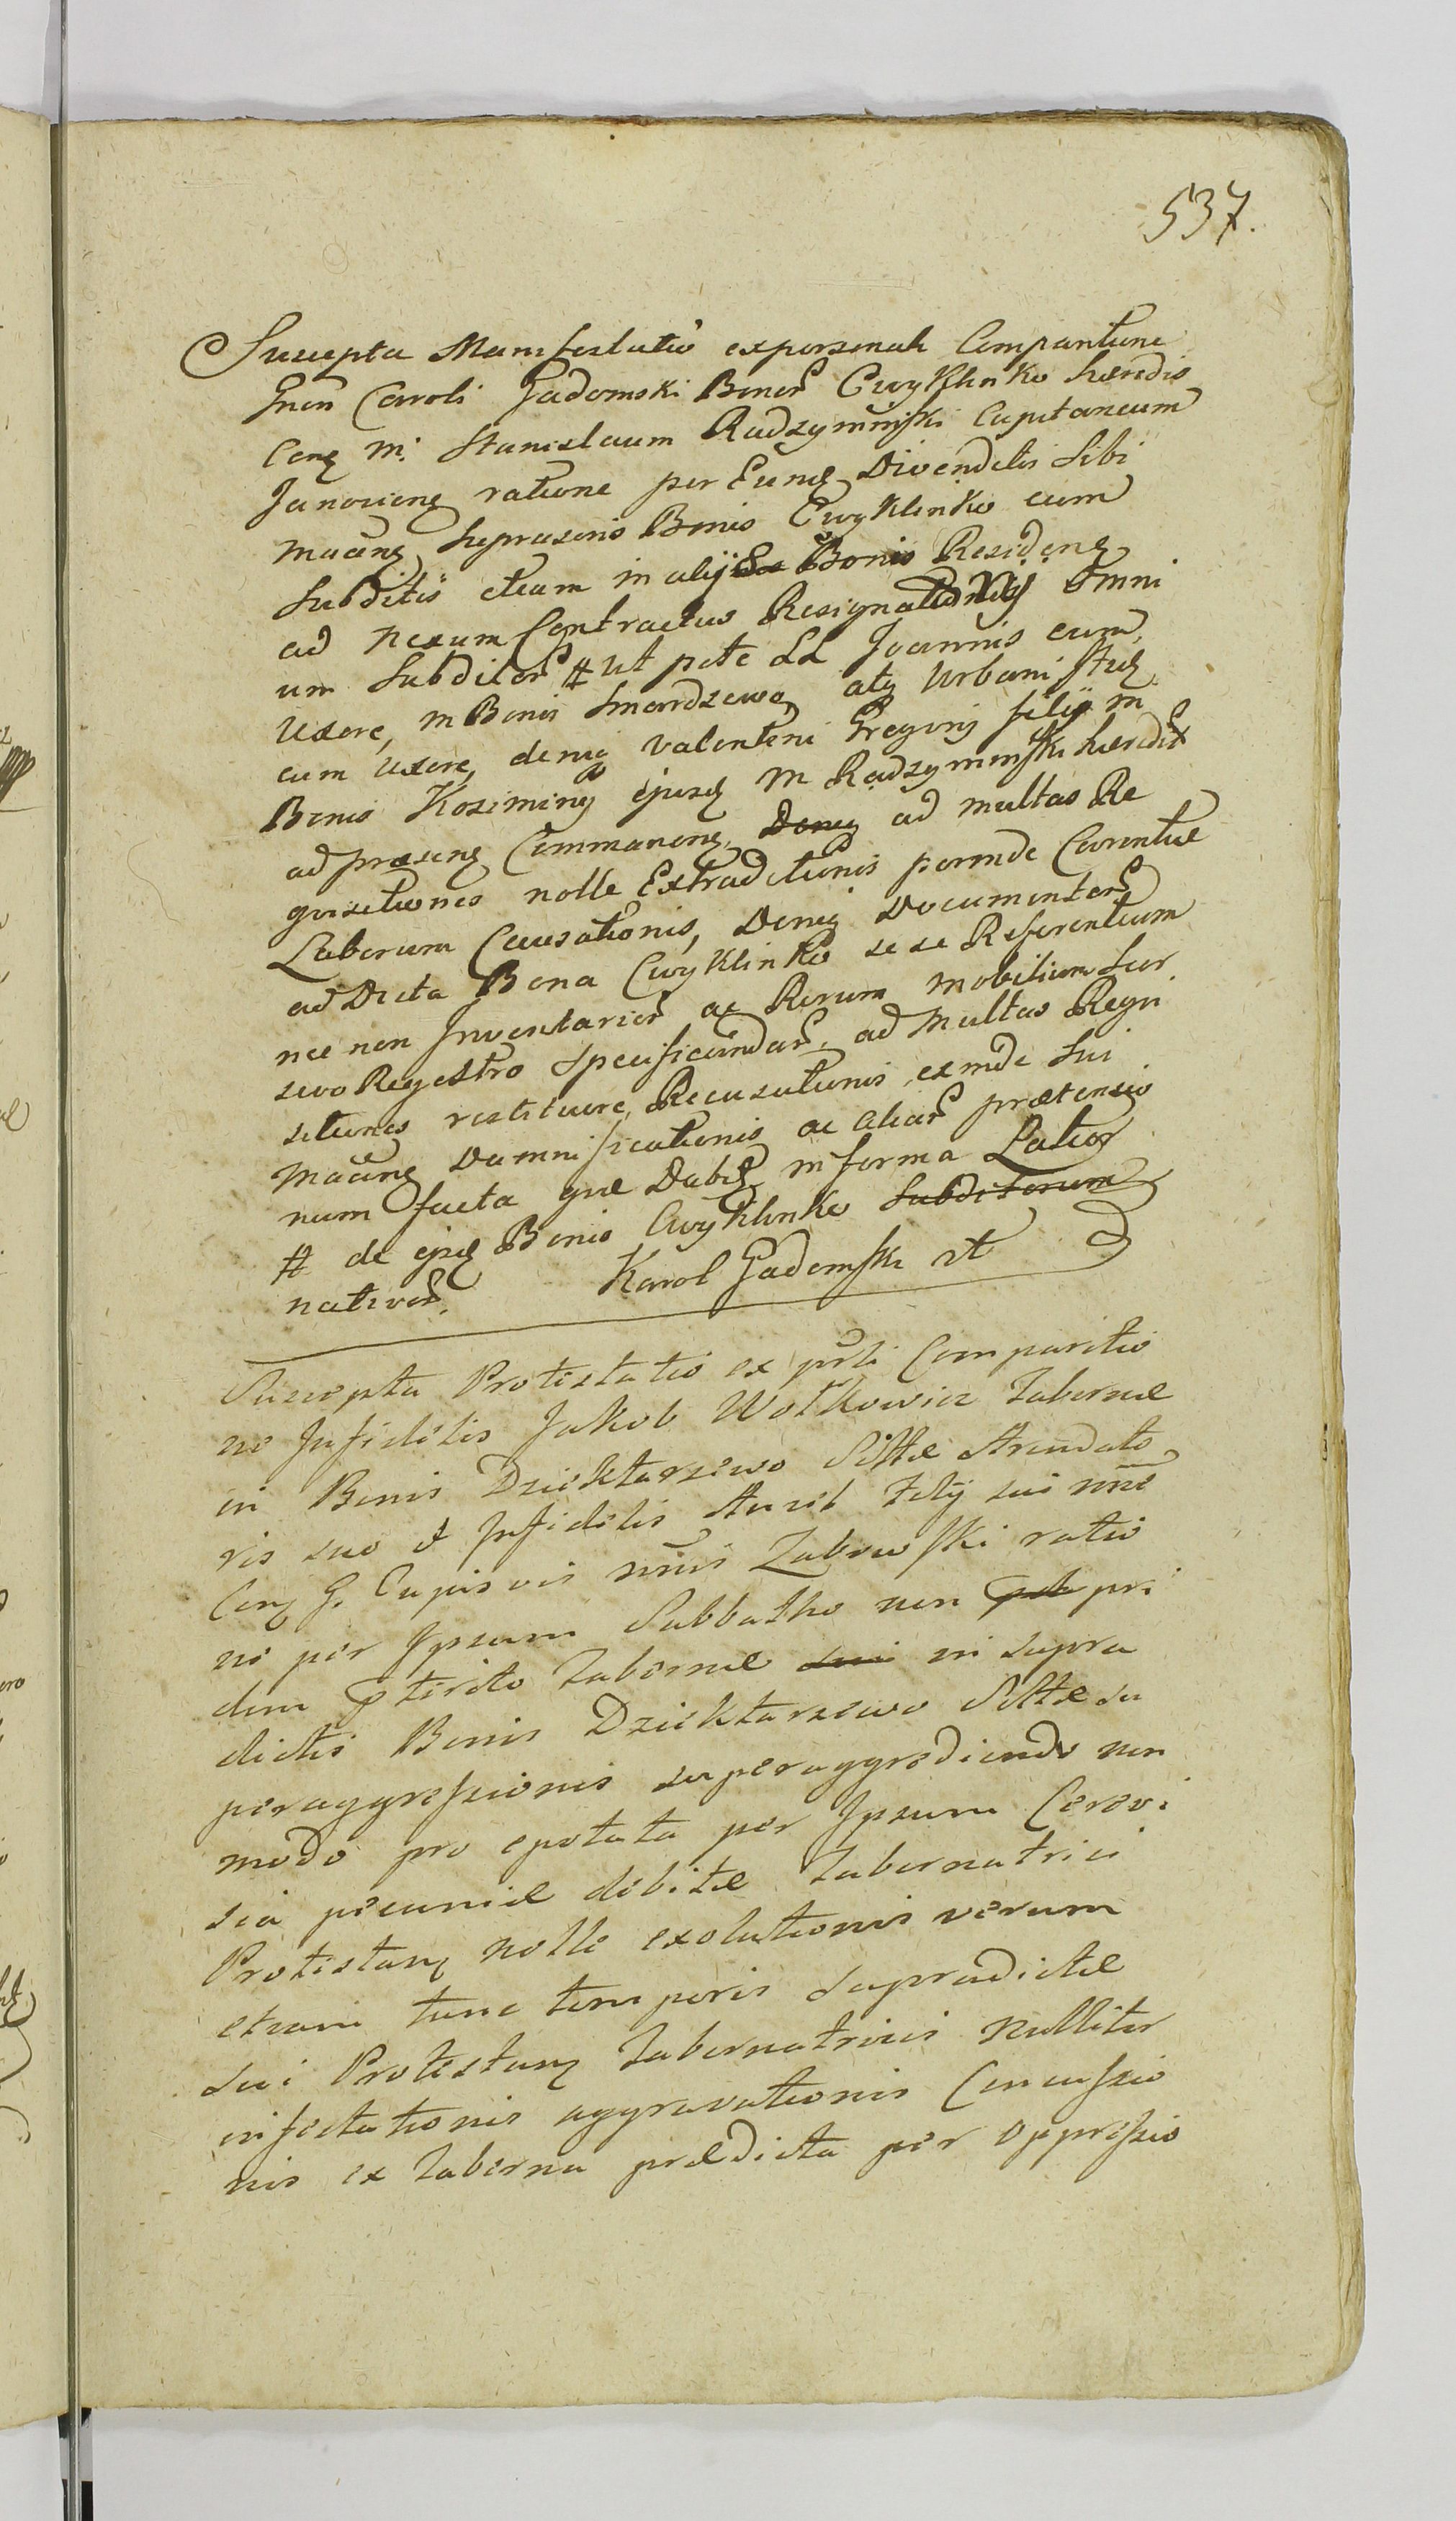 537.
Suscepta Manifestatio ex personali Comparitione
Gnen Caroli Gadomski Bonor Cwyklinko hæredis
Conq M: Stanislaum Radzyminski Capitaneum
Janovienq ratione per Eunq Divendetis Sibi
Mãtinq supraseris Bonis Cwyklinko cum
Subditis etiam in alijs Bonis Residenq
ad nexum Contractus Resignationis Omni
um Subditor # ut pote LL Joannis cum
Uxore, in Bonis Smardzewo, atq Urbani
cum Uxore, deniq Valenteni Gregorij filij in
Bonis Koziminÿ ejusq M Radzyminski hæredit
ad præsenq Commanenq, Deniq ad multas Re
quisitiones nolle Extraditionis perinde Carentiæ
Laborum Causationis, Deniq Documentor
ad Dicta Bona Cwyklinko se se Referentium
nec non Inventarior ac Rerum mobilium Suor
sevo Regestro Specificandar, ad Multas Requi
sitiones restituere, Recusationis, exinde Sui
Mãtinq Damnificationis ac aliar prætensio
num facta quæ Dabit in forma Latior
# de ejsq Bonis Cwyklinko Subditorum
nativor.
Karol Gadomski
Suscepta Protestatio ex prsli Comparitio
ne Infidelis Jakob Wolkowicz Tabernæ
in Bonis Dziektarzewo Sittæ Arendato
ris suo et Infidelis Filij sui nne
Conq G. Cujusvis nnis Zabowski ratio
ne per Ipsum Sabbatho non pri
dem pterito Tabernæ sui in supra
dictis Bonis Dziektarzewo Sittæ su
peraggressionis superaggrediendo non
modo pro epotata per Ipsum Cerevi
sia pecuniæ debitæ Tabernatrici
Protestanq nolle exolutionis verum
etiam tunc temporis supradictæ
sui Protestanq Tabernatricis nulliter
infectationis aggravationis Concussio
nis ex Taberna prædicta per oppressio